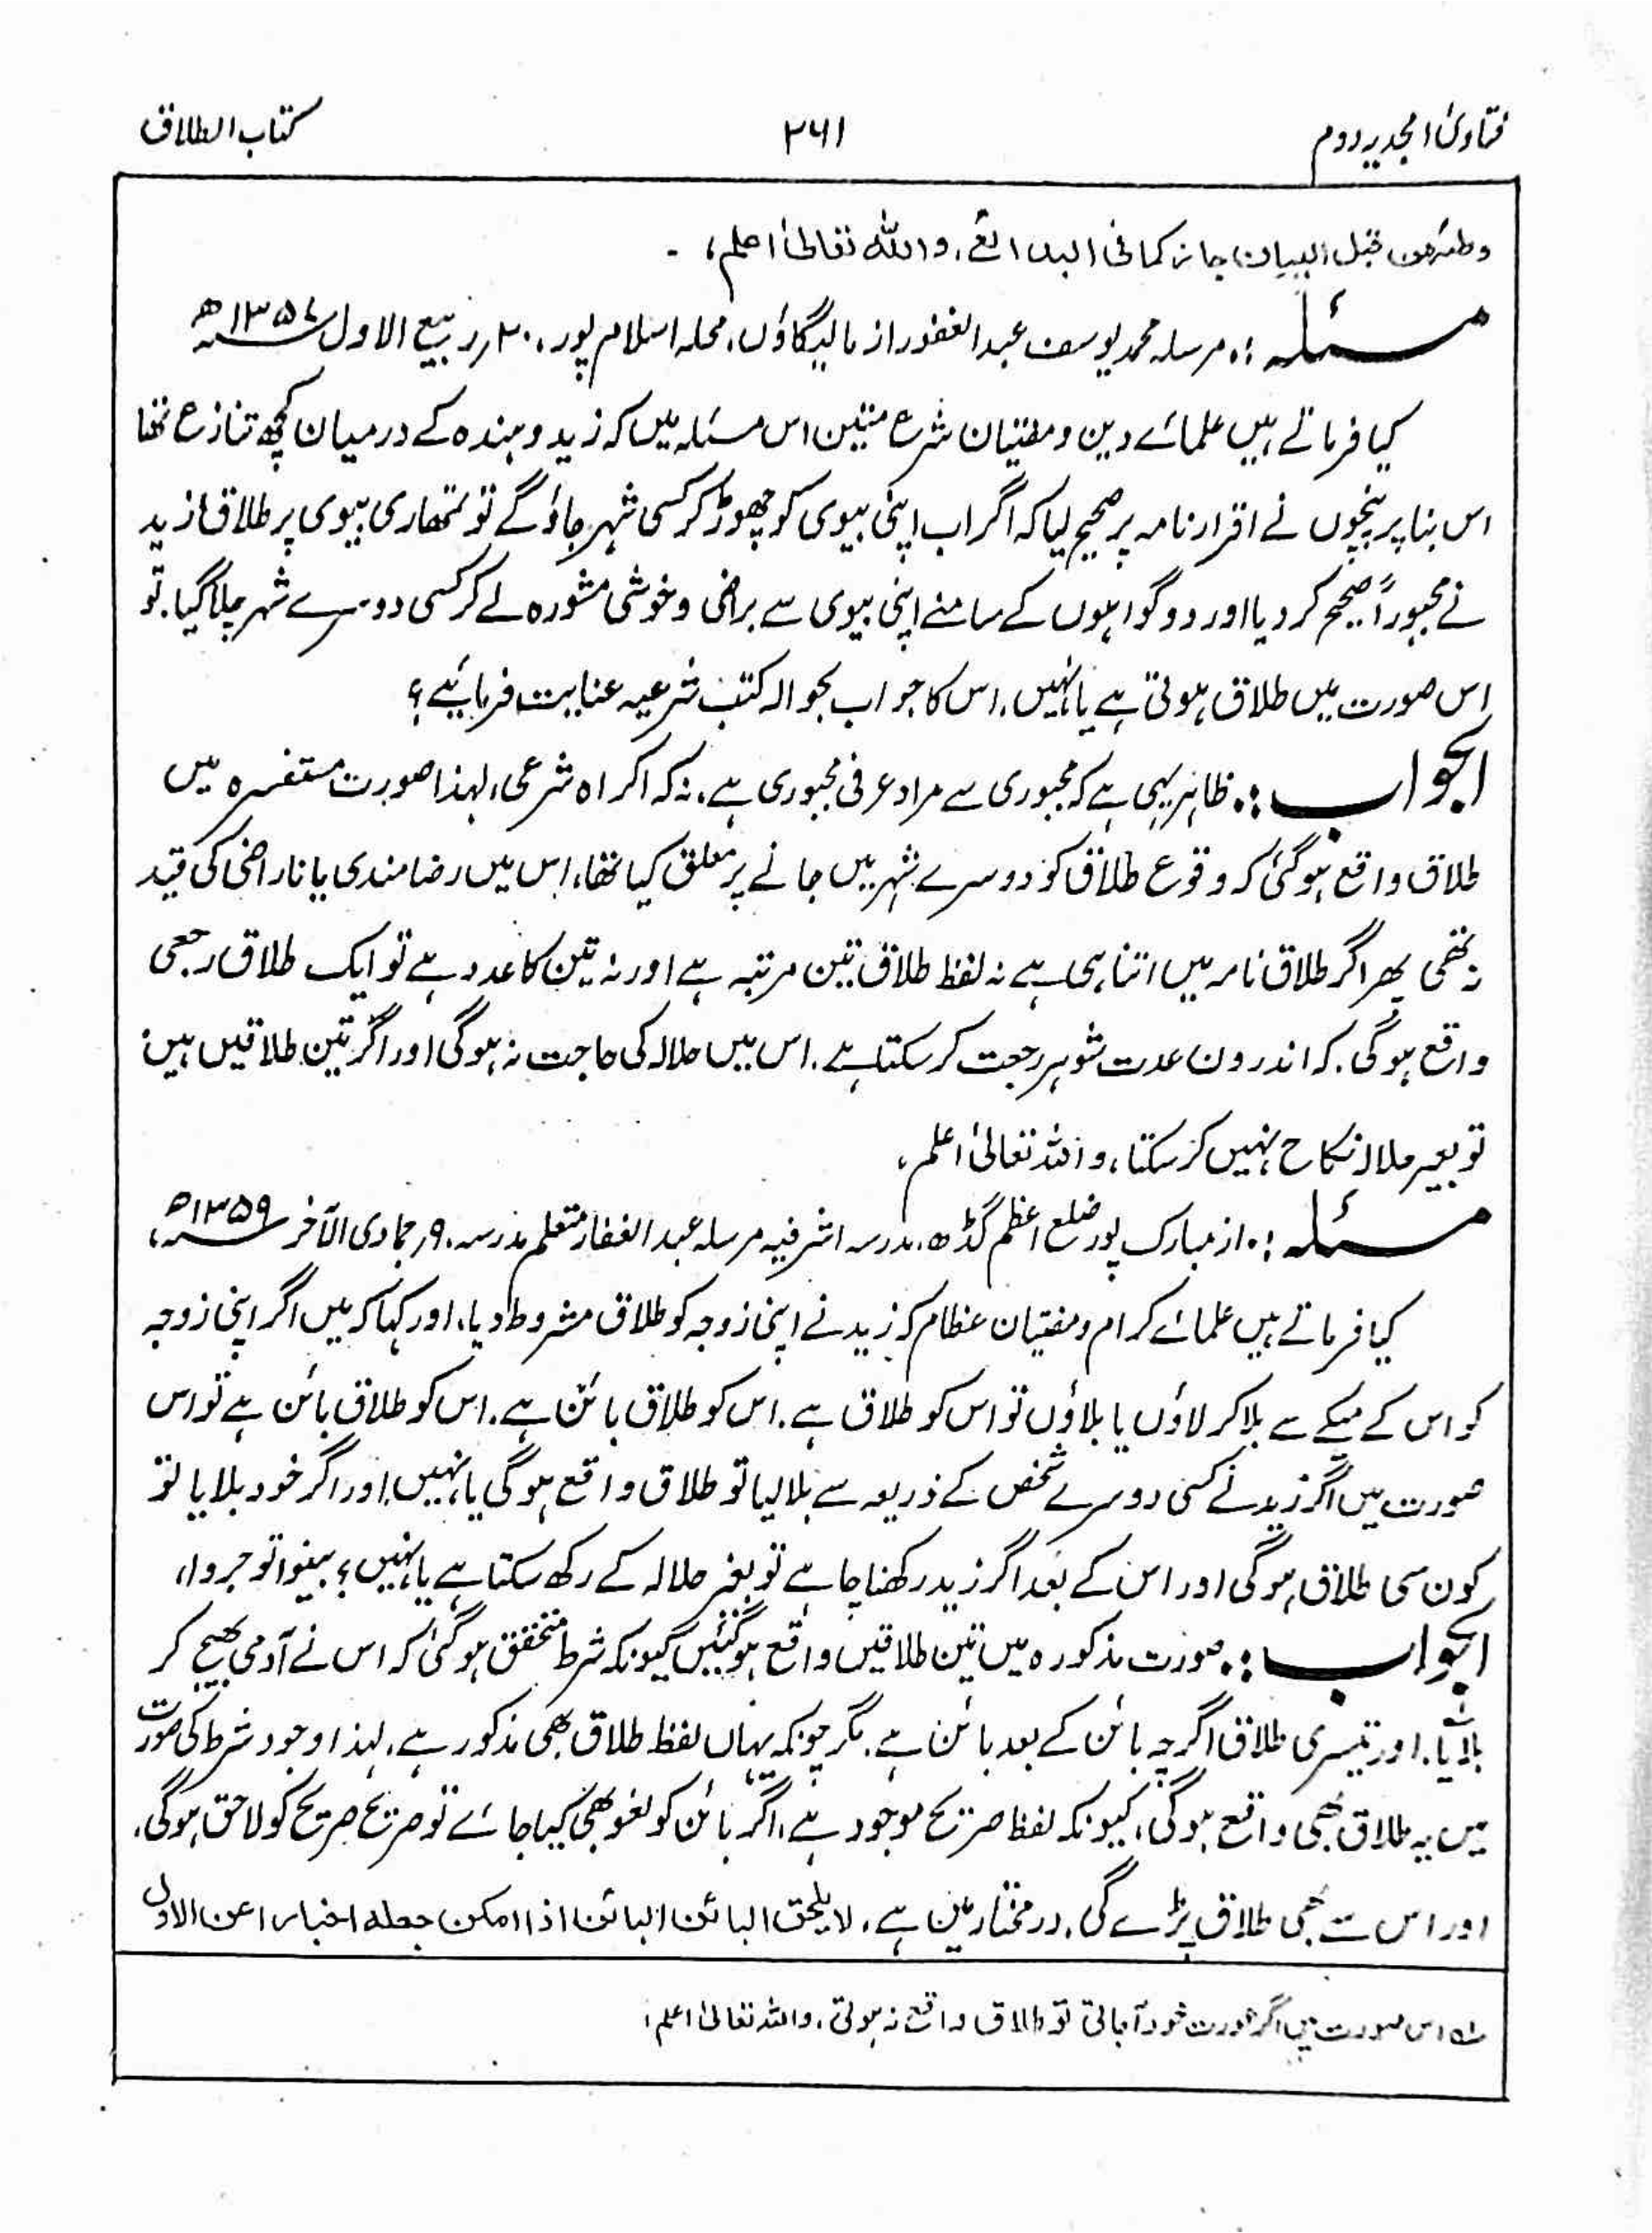 فتاویٰ امجدیہ دوم
۲۶۱
کتاب الطلاق
وطئهن قبل البیان جائز کما فی البدائع، واللہ تعالیٰ اعلم،
مسئلہ :۔ مرسلہ محمد یوسف عبدالغفور از مالیگاؤں، محلہ اسلام پور، ۲۰؍ ربیع الاول ۱۳۵۷ھ
کیا فرماتے ہیں علمائے دین و مفتیان شرع متین اس مسئلہ میں کہ زید و ہندہ کے درمیان کچھ تنازع تھا
اس بنا پر پنچوں نے اقرارنامہ پر صحیح لیا کہ اگر اب اپنی بیوی کو چھوڑ کر کسی شہر جاؤگے تو تمھاری بیوی پر طلاق، زید
نے مجبوراً صحیح کر دیا اور دو گواہوں کے سامنے اپنی بیوی سے براضی و خوشی مشورہ لے کر کسی دوسرے شہر چلا گیا. تو
اس صورت میں طلاق ہوتی ہے یا نہیں، اس کا جواب بحوالہ کتب شرعیہ عنایت فرمائیے؟
الجواب :۔ ظاہر یہی ہے کہ مجبوری سے مراد عرفی مجبوری ہے، نہ کہ اکراہ شرعی، لہذا صورت مستفسرہ میں
طلاق واقع ہوگئی کہ وقوع طلاق کو دوسرے شہر میں جانے پر معلق کیا تھا، اس میں رضامندی یا ناراضی کی قید
نہ تھی پھر اگر طلاق نامہ میں اتنا ہی ہے نہ لفظ طلاق تین مرتبہ ہے اور نہ تین کا عدد ہے تو ایک طلاق رجعی
واقع ہوگی. کہ اندرون عدت شوہر رجعت کر سکتا ہے. اس میں حلالہ کی حاجت نہ ہوگی اور اگر تین طلاقیں ہیں
تو بغیر حلالہ نکاح نہیں کر سکتا، واللہ تعالیٰ اعلم،
مسئلہ :۔ از مبارک پور ضلع اعظم گڈھ، مدرسہ اشرفیہ مرسلہ عبدالغفار متعلم مدرسہ، ۹؍ جمادی الآخر ۱۳۵۹ھ،
کیا فرماتے ہیں علمائے کرام و مفتیان عظام کہ زید نے اپنی زوجہ کو طلاق مشروط دیا، اور کہا کہ میں اگر اپنی زوجہ
کو اس کے میکے سے بلا کر لاؤں یا بلاؤں تو اس کو طلاق ہے. اس کو طلاق بائن ہے. اس کو طلاق بائن ہے تو اس
صورت میں اگر زید نے کسی دوسرے شخص کے ذریعہ سے بلا لیا تو طلاق واقع ہوگی یا نہیں، اور اگر خود بلایا تو
کون سی طلاق ہوگی اور اس کے بعد اگر زید رکھنا چاہے تو بغیر حلالہ کے رکھ سکتا ہے یا نہیں؟ بینوا توجروا،
الجواب :۔ صورت مذکورہ میں تین طلاقیں واقع ہوگئیں کیونکہ شرط متحقق ہوگئی کہ اس نے آدمی بھیج کر
بلایا. اور تیسری طلاق اگرچہ بائن کے بعد بائن ہے. مگر چونکہ یہاں لفظ طلاق بھی مذکور ہے، لہذا وجود شرط کی صورت
میں یہ طلاق بھی واقع ہوگی، کیونکہ لفظ صریح موجود ہے، اگر بائن کو لغو بھی کیا جائے تو صریح صریح کو لاحق ہوگی،
اور اس سے بھی طلاق پڑے گی. درمختار میں ہے، لا یلحق البائن البائن اذا امکن جعله اخبارا عن الاول
اس صورت میں اگر عورت خود آجاتی تو طلاق واقع نہ ہوتی، واللہ تعالیٰ اعلم،